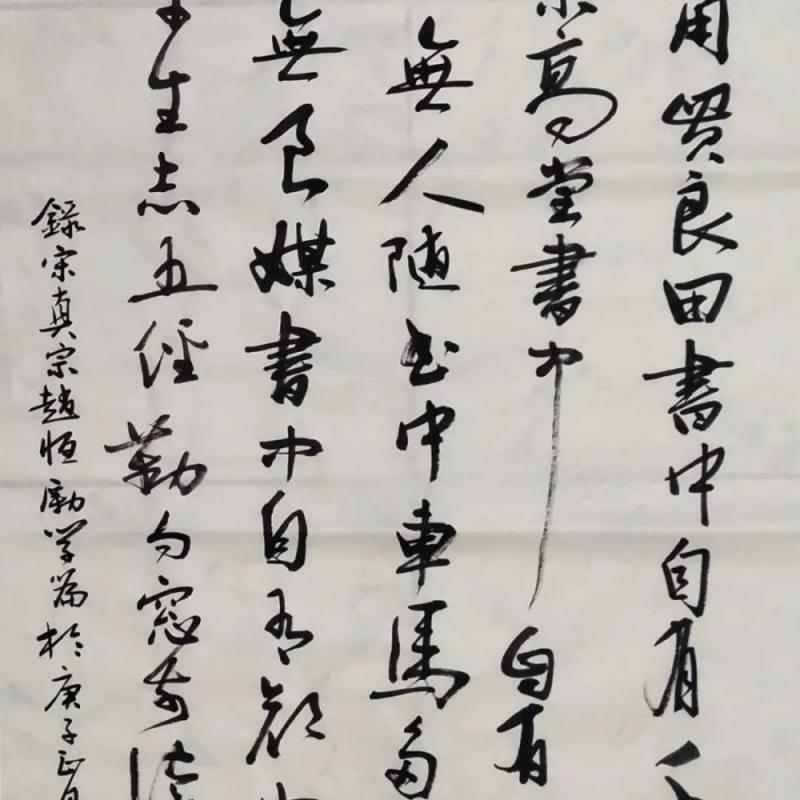 用買良田書中自有千
架高堂書中自有
無人隨書中車馬多
無良媒書中自有顏
平生志五經勤向窗前讀
錄宋真宗趙恒勵學篇於庚子正月